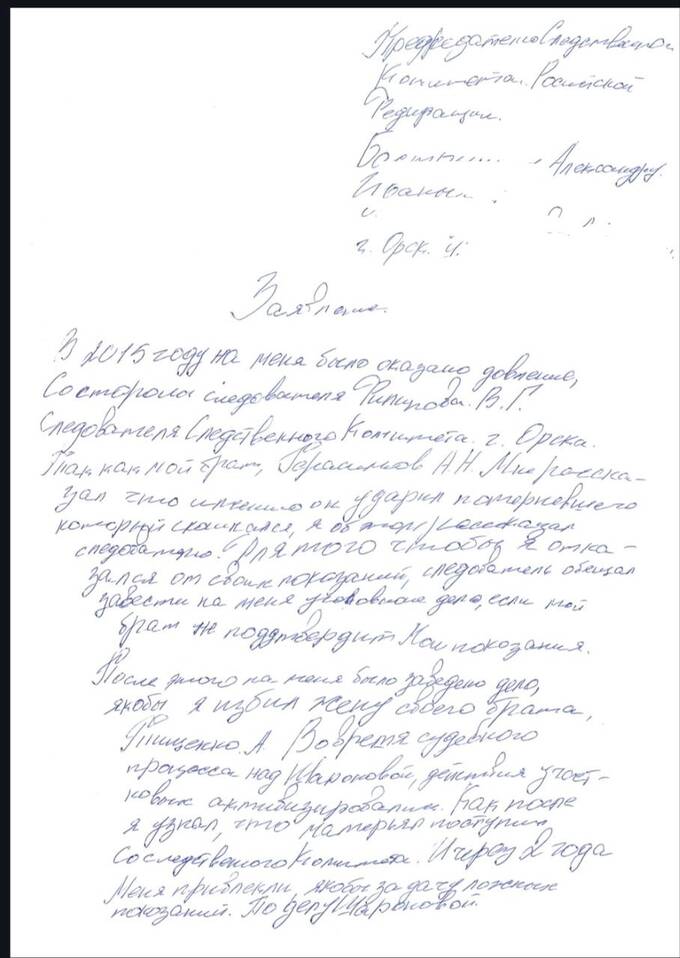 Председателю Следственного
Комитета Российской
Федирации.
Александру
г. Орск.
Заявление.
В 2015 году на меня было оказано довление,
Со стороны следователя В.Г.
Следователя Следственного Комитета г. Орска.
Так как мой брат, Герасимов А.Н. Мне расска-
зал что именно он ударил потерпевшего
который скончался, я об этом рассказал
следователю. Для того чтобы я отка-
зался от своих показаний, следователь обещал
завести на меня уголовное дело, если мой
брат не поддтвердит Мои показания.
После этого на меня было заведено дело,
якобы я избил жену своего брата,
Тищенко А. Во время судебного
процесса над Шароновой, действия участ-
ковых активизировались. Как после
я узнал, что матерьял поступил
Со следственого Комитета. И через 2 года
Меня привлекли, якобы за дачу ложных
показаний. По делу Шароновой.